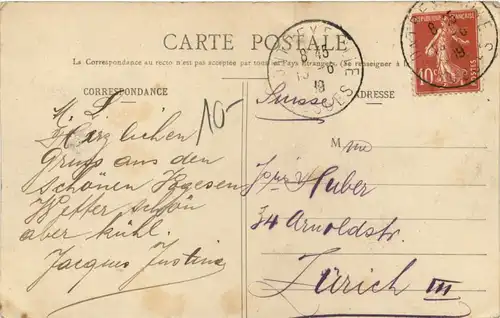 CARTE POSTALE
La Correspondance au recto n'est pas acceptée par tous les Pays étrangers. (Se renseigner à la
CORRESPONDANCE
ADRESSE
8 45
VOSGES
REPUBLIQUE FRANÇAISE
10
POSTES
10-
Suisse
M. L.
Herzlichen
Gruss aus den
schönen Vogesen
Wetter schön
aber kühl.
Jacques Justine
Mme
Huber
34 Arnoldstr.
Zürich III